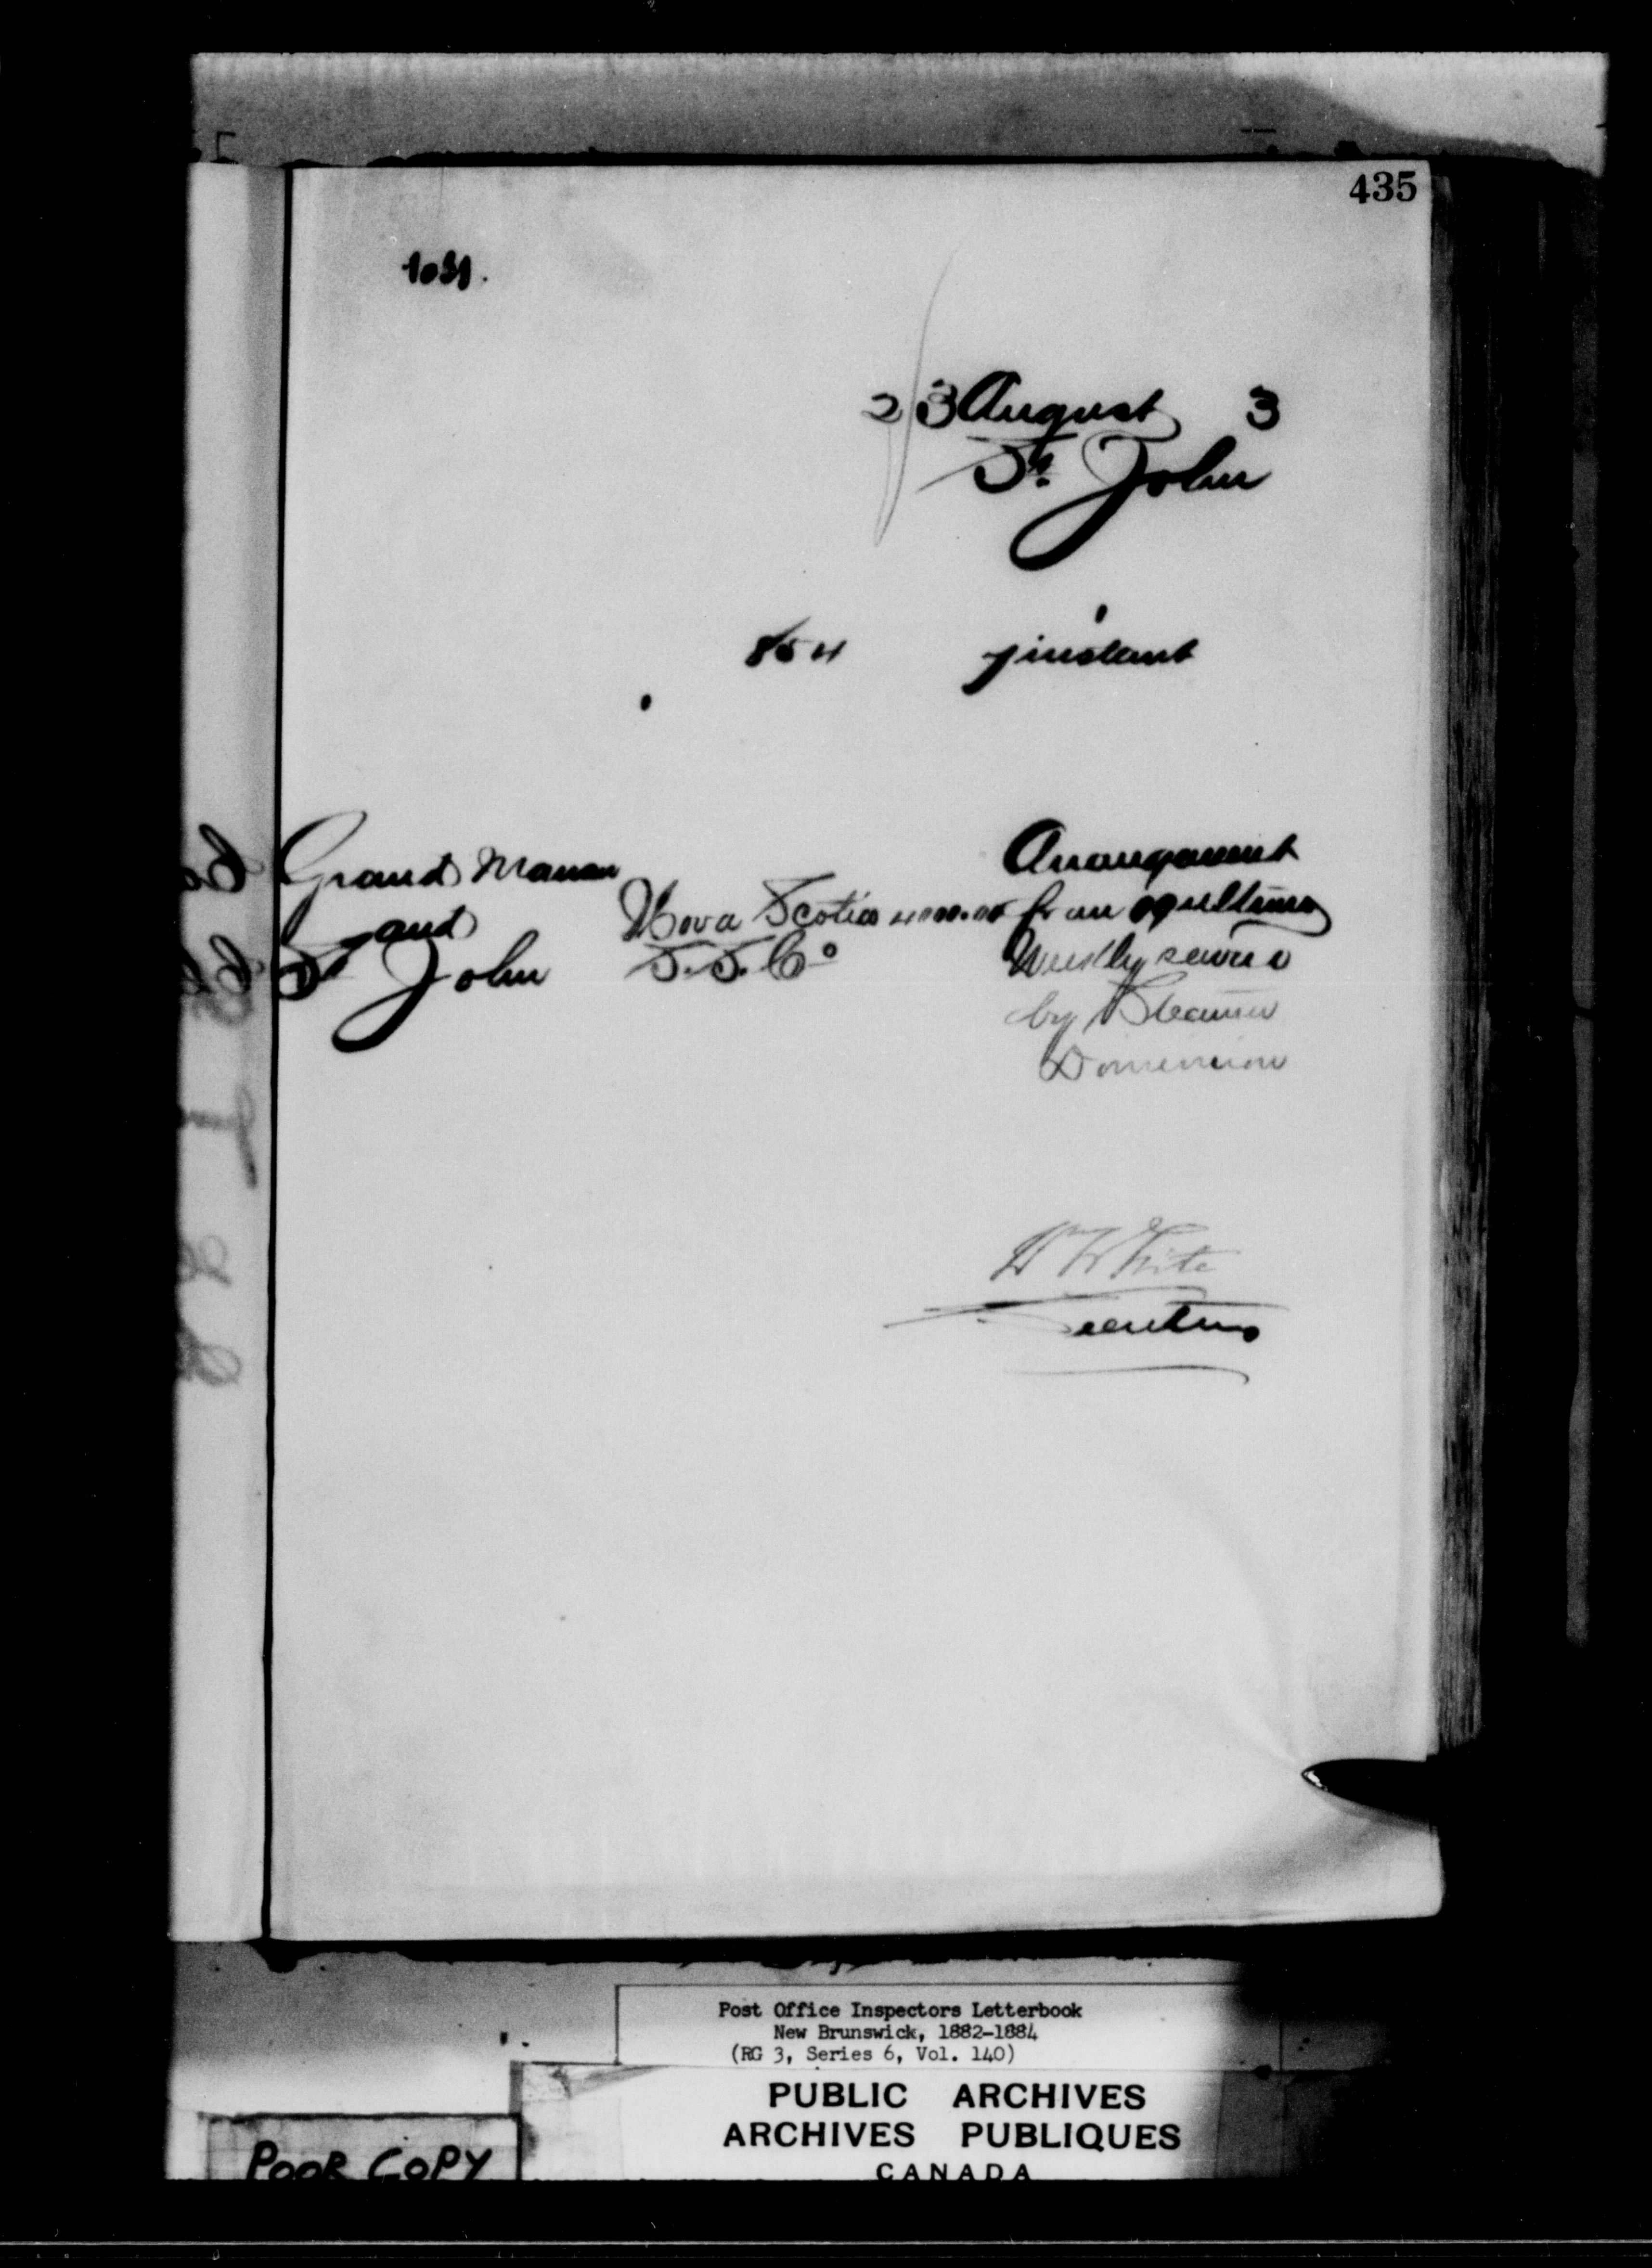 435
1031.
23 August 3
St. John
854 instant
Grand Manan Arrangement
and Nova Scotia 400.00 for an
St John S.S. Co Weekly service
by Steamer
Dominion
W White
Secretary
Post Office Inspectors Letterbook
New Brunswick, 1882-1884
(RG 3, Series 6, Vol. 140)
PUBLIC ARCHIVES
ARCHIVES PUBLIQUES
CANADA
POOR COPY